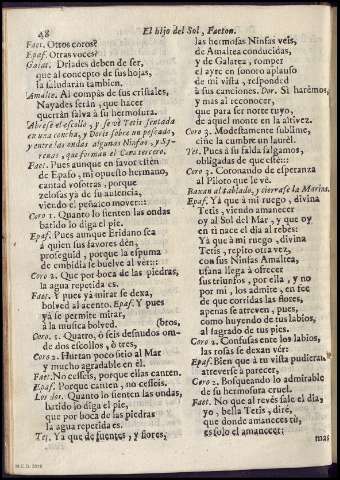 48
El hijo del Sol, Faeton.
Faet. Otros coros?
Epaf. Otras voces?
Galat. Driades deben de ser,
que al concepto de sus hojas,
la saludarán tambien.
Amalte. Al compás de sus cristales,
Nayades serán, que hacer
querrán salva á su hermosura.
Abrese el escollo, y se vé Tetis sentada
en una concha, y Doris sobre un pescado,
y entre las ondas algunas Ninfas, y Sy-
renas, que forman el Coro tercero.
Faet. Pues aunque en favor estén
de Epafo, mi opuesto hermano,
cantad vosotras, porque
zelosas ya de su autencia,
viendo el peñasco mover:::
Coro 1. Quanto lo sienten las ondas
batido lo diga el pie.
Epaf. Pues aunque Eridano sea
á quien sus favores dén,
proseguid, porque la espuma
de embidia se buelve al vér:::
Coro 2. Que por boca de las piedras,
la agua repetida es.
Faet. Y pues yá mirar se dexa,
bolved al acento. Epaf. Y pues
yá se permite mirar,
á la musica bolved. (bros,
Coro. 1. Quatro, ó seis desnudos om-
de dos escollos, ó tres,
Coro 2. Hurtan poco sitio al Mar
y mucho agradable en él.
Faet. No cesseis, porque ellas canten.
Epaf. Porque canten, no cesseis.
Los dos. Quanto lo sienten las ondas,
batido lo diga el pie,
que por boca de las piedras
la agua repetida es.
Tet. Ya que de fuentes, y flores,
las hermosas Ninfas veis,
de Amaltea conducidas,
y de Galatea, romper
el ayre en sonoro aplauso
de mi vista, responded
á sus canciones. Dor. Sí harémos,
y mas al reconocer,
que para ser norte tuyo,
de aquel monte en la altivez.
Coro 3. Modestamente sublime,
ciñe la cumbre un laurél.
Tet. Pues á su falda salgamos,
obligadas de que esté:::
Coro 3. Coronando de esperanza
al Piloto que le vé.
Baxan al tablado, y cierrase la Marina.
Epaf. Yá que á mi ruego, divina
Tetis, viendo amanecer
oy al Sol del mar, y que oy
en ti nace el dia al rebés:
Yá que á mi ruego, divina
Tetis, repito otra vez,
con sus Ninfas Amaltea,
ufana llega á ofrecer
sus triunfos, por ella, y no
por mi, los admite, en fee
de que corridas las flores,
apenas se atreven, pues,
como huyendo de tus labios,
al sagrado de tus pies.
Coro 2. Confusas entre los labios,
las rosas se dexan vér:
Epaf. Bien que á tu vista pudieran
atreverse á parecer,
Coro 2. Bosqueando lo admirable
de su hermosura cruel.
Faet. No que al revés sale el dia,
yo, bella Tetis, diré,
que donde amaneces tú,
es solo el amanecer;
mas